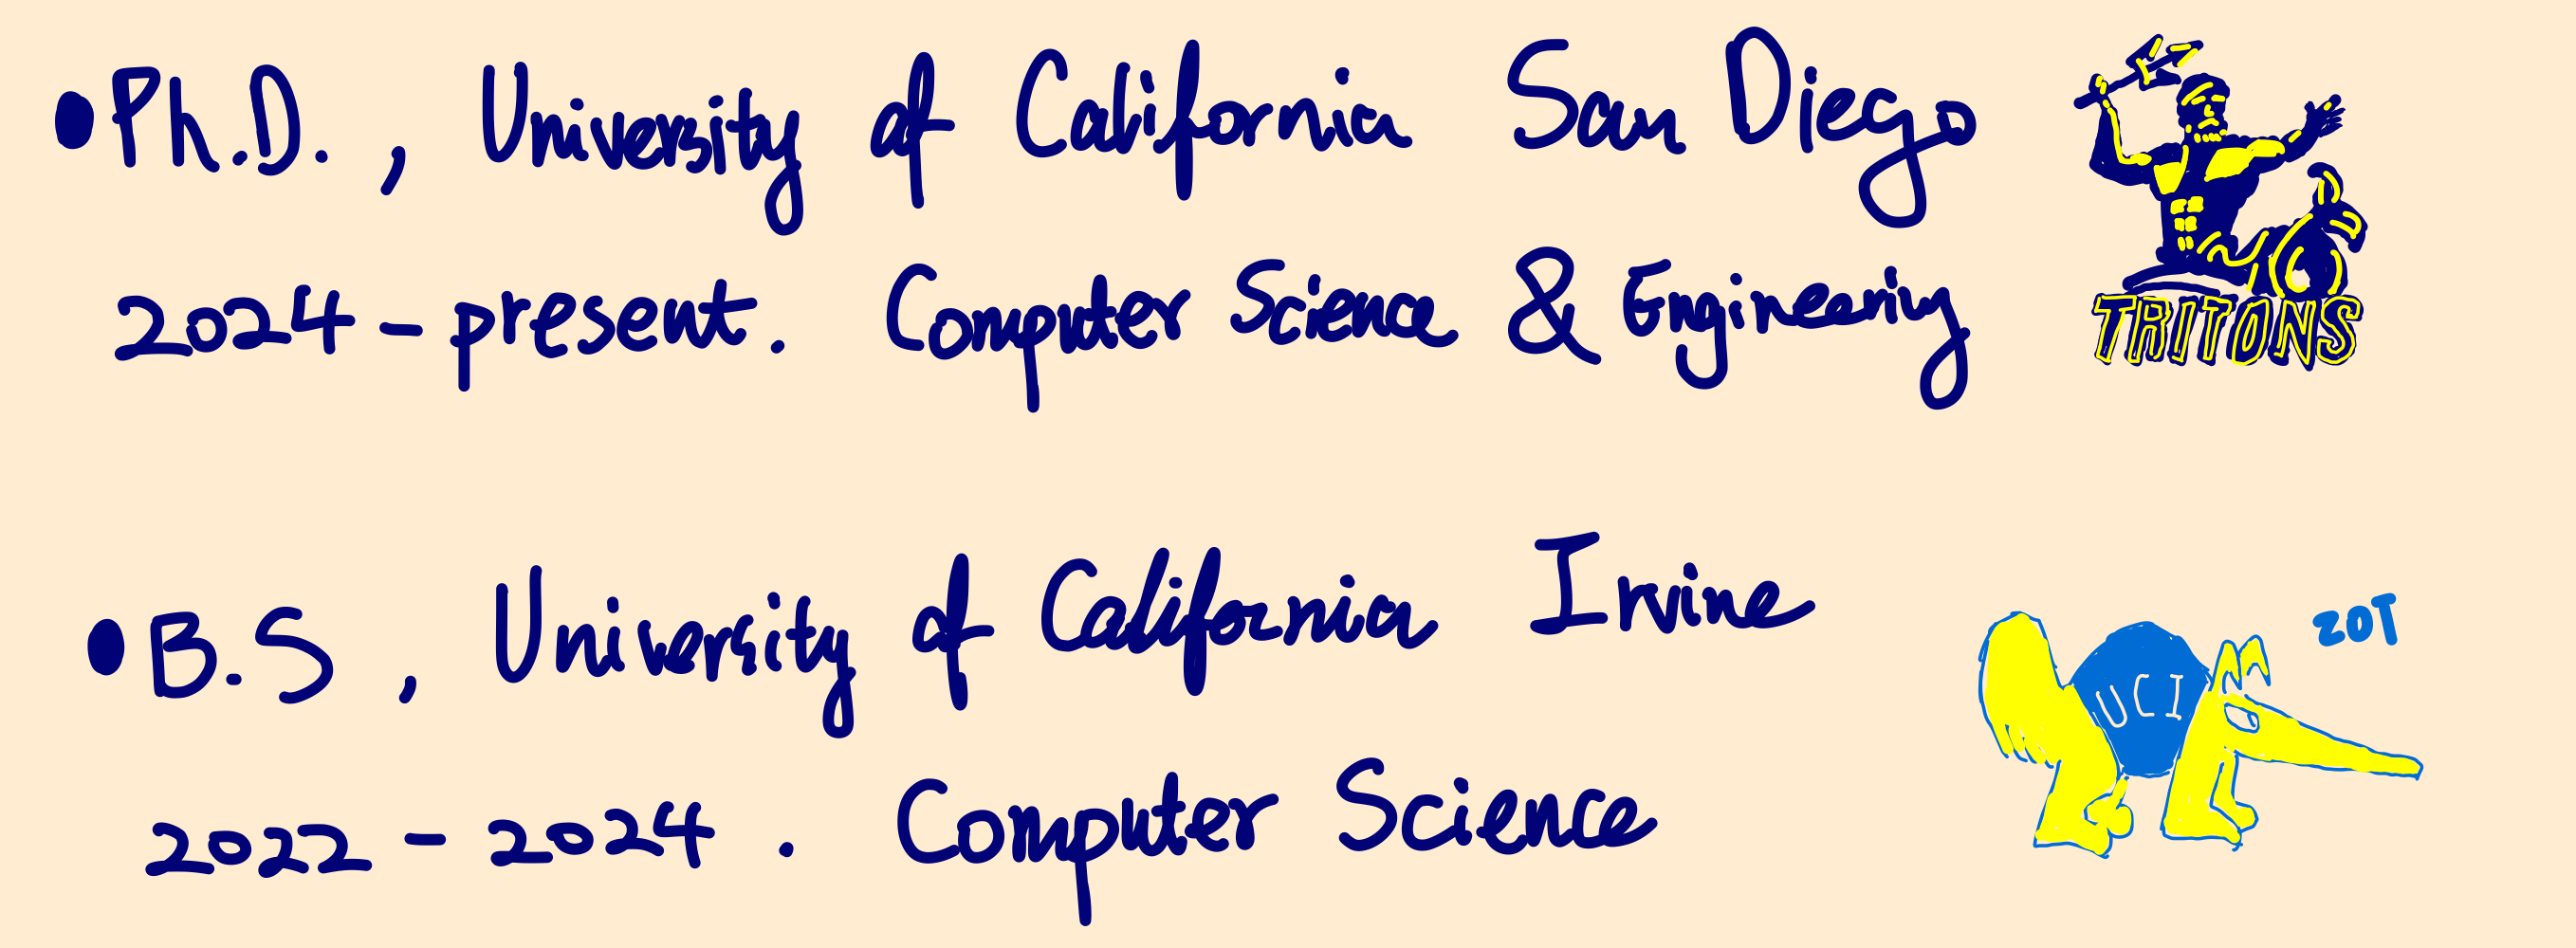 •Ph.D., University of California San Diego
2024-present. Computer Science & Engineering
TRITONS
•B.S, University of California Irvine
ZOT
UCI
2022-2024. Computer Science